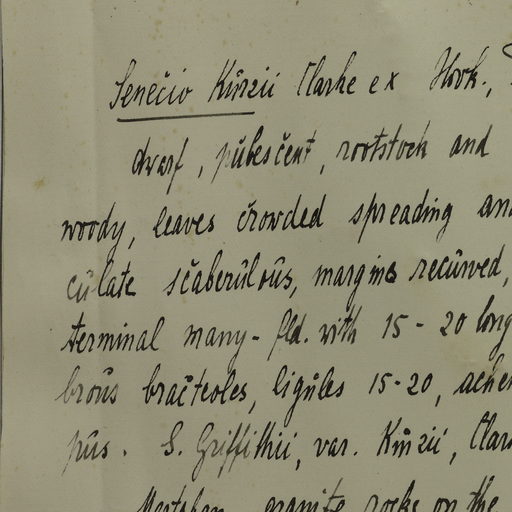 Senecio Kurzii Clarke ex Hook.,
dwarf, pubescent, rootstock and
woody, leaves crowded spreading and
culate scaberulous, margins recurved,
terminal many-fld. with 15-20 long
brous bracteoles, ligules 15-20, achen
pus. S. Griffithii, var. Kurzii, Clar
granite rocks on the